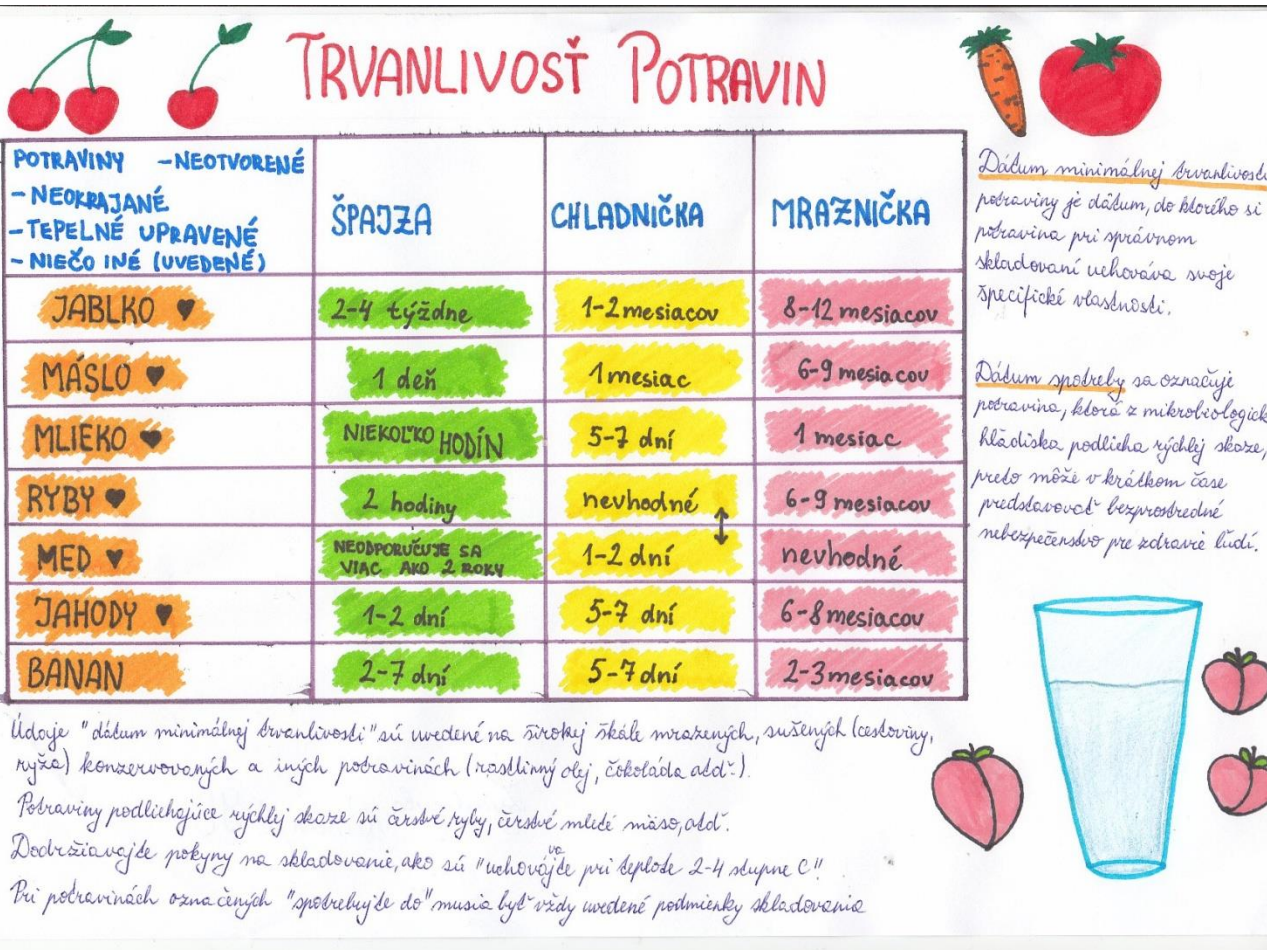 TRVANLIVOSŤ POTRAVIN
POTRAVINY -NEOTVORENÉ
- NEOKRAJANÉ
- TEPELNÉ UPRAVENÉ
- NIEČO INÉ (UVEDENÉ)
ŠPAJZA
CHLADNIČKA
MRAZNIČKA
JABLKO ♥ 2-4 týždne 1-2 mesiacov 8-12 mesiacov
MÁSLO ♥ 1 deň 1 mesiac 6-9 mesiacov
MLIEKO ♥ NIEKOĽKO HODÍN 5-7 dní 1 mesiac
RYBY ♥ 2 hodiny nevhodné 6-9 mesiacov
MED ♥ NEODPORUČUJE SA
VIAC AKO 2 ROKY 1-2 dní nevhodné
JAHODY ♥ 1-2 dní 5-7 dní 6-8 mesiacov
BANAN 2-7 dní 5-7 dní 2-3 mesiacov
Dátum minimálnej trvanlivosti
potraviny je dátum, do ktorého si
potravina pri správnom
skladovaní uchováva svoje
špecifické vlastnosti.
Dátum spotreby sa označuje
potravina, ktorá z mikrobiologick
hľadiska podlieha rýchlej skaze,
preto môže v krátkom čase
predstavovať bezprostredné
nebezpečenstvo pre zdravie ľudí.
Údaje "dátum minimálnej trvanlivosti" sú uvedené na širokej škále mrazených, sušených (cestoviny,
ryža) konzervovaných a iných potravinách (rastlinný olej, čokoláda atď.).
Potraviny podliehajúce rýchlej skaze sú čerstvé ryby, čerstvé mleté mäso, atď.
Dodržiavajte pokyny na skladovanie, ako sú "uchovávajte pri teplote 2-4 stupne C"!
Pri potravinách označených "spotrebujte do" musia byť vždy uvedené podmienky skladovania